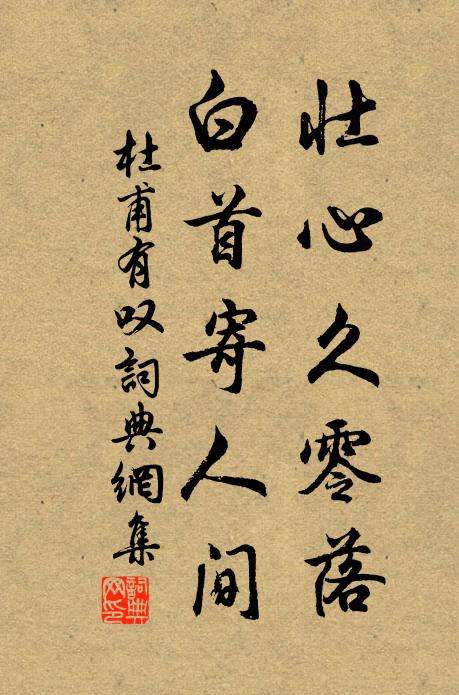 壮心久零落
白首寄人间
杜甫有叹詞典網集
詞典網印